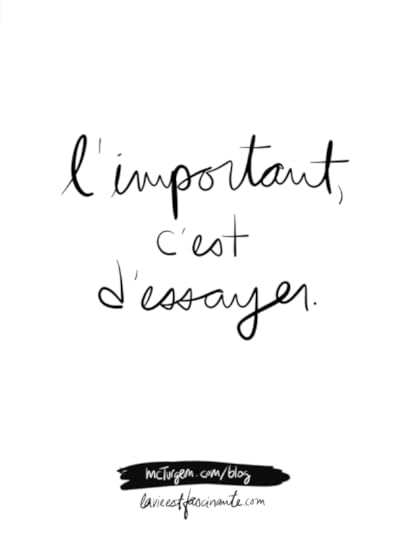 l'important,
c'est
d'essayer.
mcTurgeon.com/blog
lavieestfascinante.com